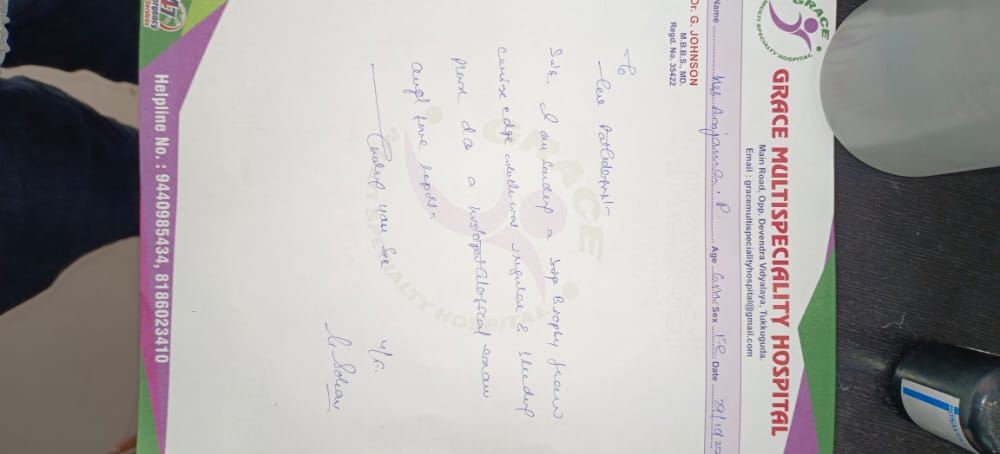 GRACE
MULTI SPECIALITY HOSPITAL
GRACE MULTISPECIALITY HOSPITAL
Main Road, Opp. Devendra Vidyalaya, Tukkuguda.
Email : gracemultispecialityhospital@gmail.com
Name Age Sex Date 29/10/25
Dr. G. JOHNSON
M.B.B.S., MD.
Regd. No. 35422
To
The Pathologist:-
Sir, I am sending a Biopsy from
edge which was irregular & bleeding
Please do a histopathological exam
and give report.
Thanking you Sir
GRACE
SPECIALTY HOSPITAL
Helpline No. : 9440985434, 8186023410